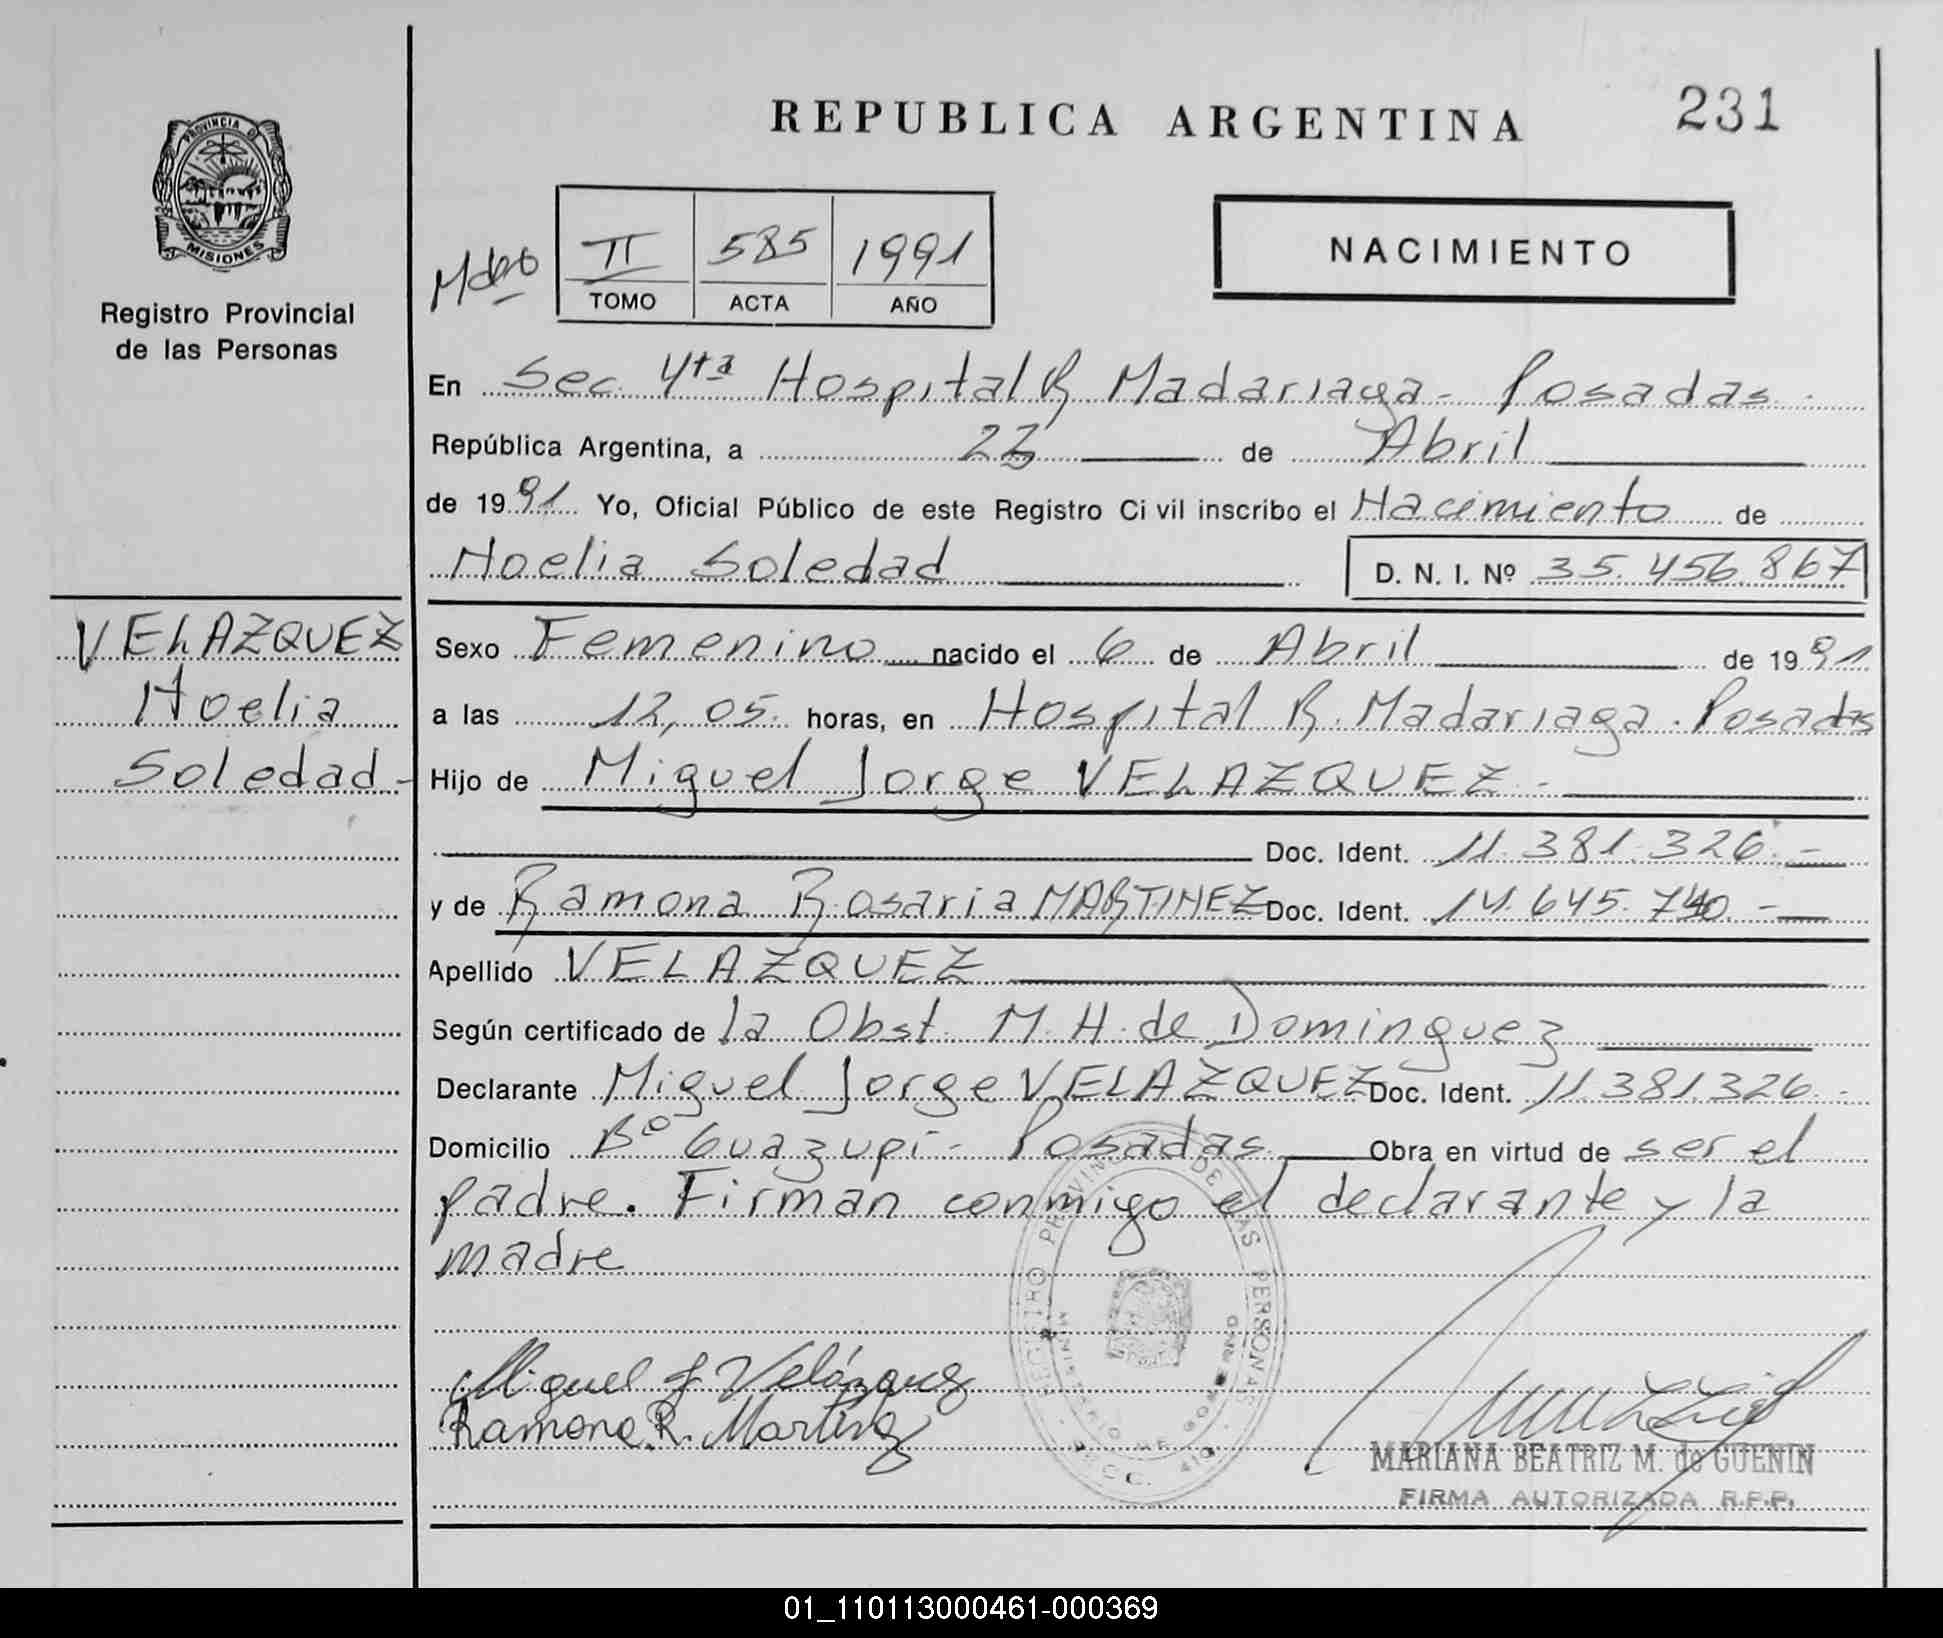 REPUBLICA ARGENTINA
231
PROVINCIA DE
MISIONES
Registro Provincial
de las Personas
Mdeo
II 585 1991
TOMO ACTA AÑO
NACIMIENTO
En Sec. 4ta Hospital R. Madariaga - Posadas.
República Argentina, a 23 de Abril
de 1991 Yo, Oficial Público de este Registro Civil inscribo el Nacimiento de
Noelia Soledad D. N. I. Nº 35.456.867
VELAZQUEZ
Noelia
Soledad -
Sexo Femenino nacido el 6 de Abril de 1991
a las 12,05 horas, en Hospital R. Madariaga. Posadas
Hijo de Miguel Jorge VELAZQUEZ -
Doc. Ident. 11.381.326. -
y de Ramona Rosaria MARTINEZ Doc. Ident. 14.645.740. -
Apellido VELAZQUEZ
Según certificado de la Obst. M. H. de Dominguez
Declarante Miguel Jorge VELAZQUEZ Doc. Ident. 11.381.326. -
Domicilio Bº Guazupi - Posadas Obra en virtud de ser el
padre. Firman conmigo el declarante y la
madre
REGISTRO PROVINCIAL DE LAS PERSONAS
MINISTERIO DE GOBIERNO
Miguel J Velázquez
Ramona R. Martinez
MARIANA BEATRIZ M. de GUENIN
FIRMA AUTORIZADA R.P.P.
01_110113000461-000369